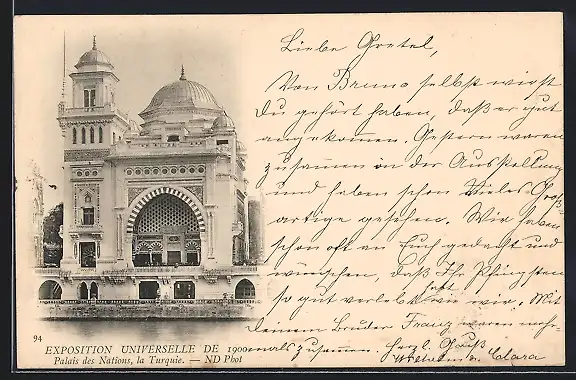 Liebe Gretel,
Von Bruno selbst wirst
Du gehört haben, daß er gut
angekommen. Gestern waren
zusammen in der Ausstellung
und haben schon vieles Groß-
artige gesehen. Wir haben
schon oft an Euch gedacht und
wünschen, daß Ihr Pfingsten
so gut verlebt habt wie wir. Mit
Deinem Bruder Franz waren mehr-
mals zusammen. Herzl. Gruß
Wilhelm u. Clara
94
EXPOSITION UNIVERSELLE DE 1900
Palais des Nations, la Turquie. — ND Phot